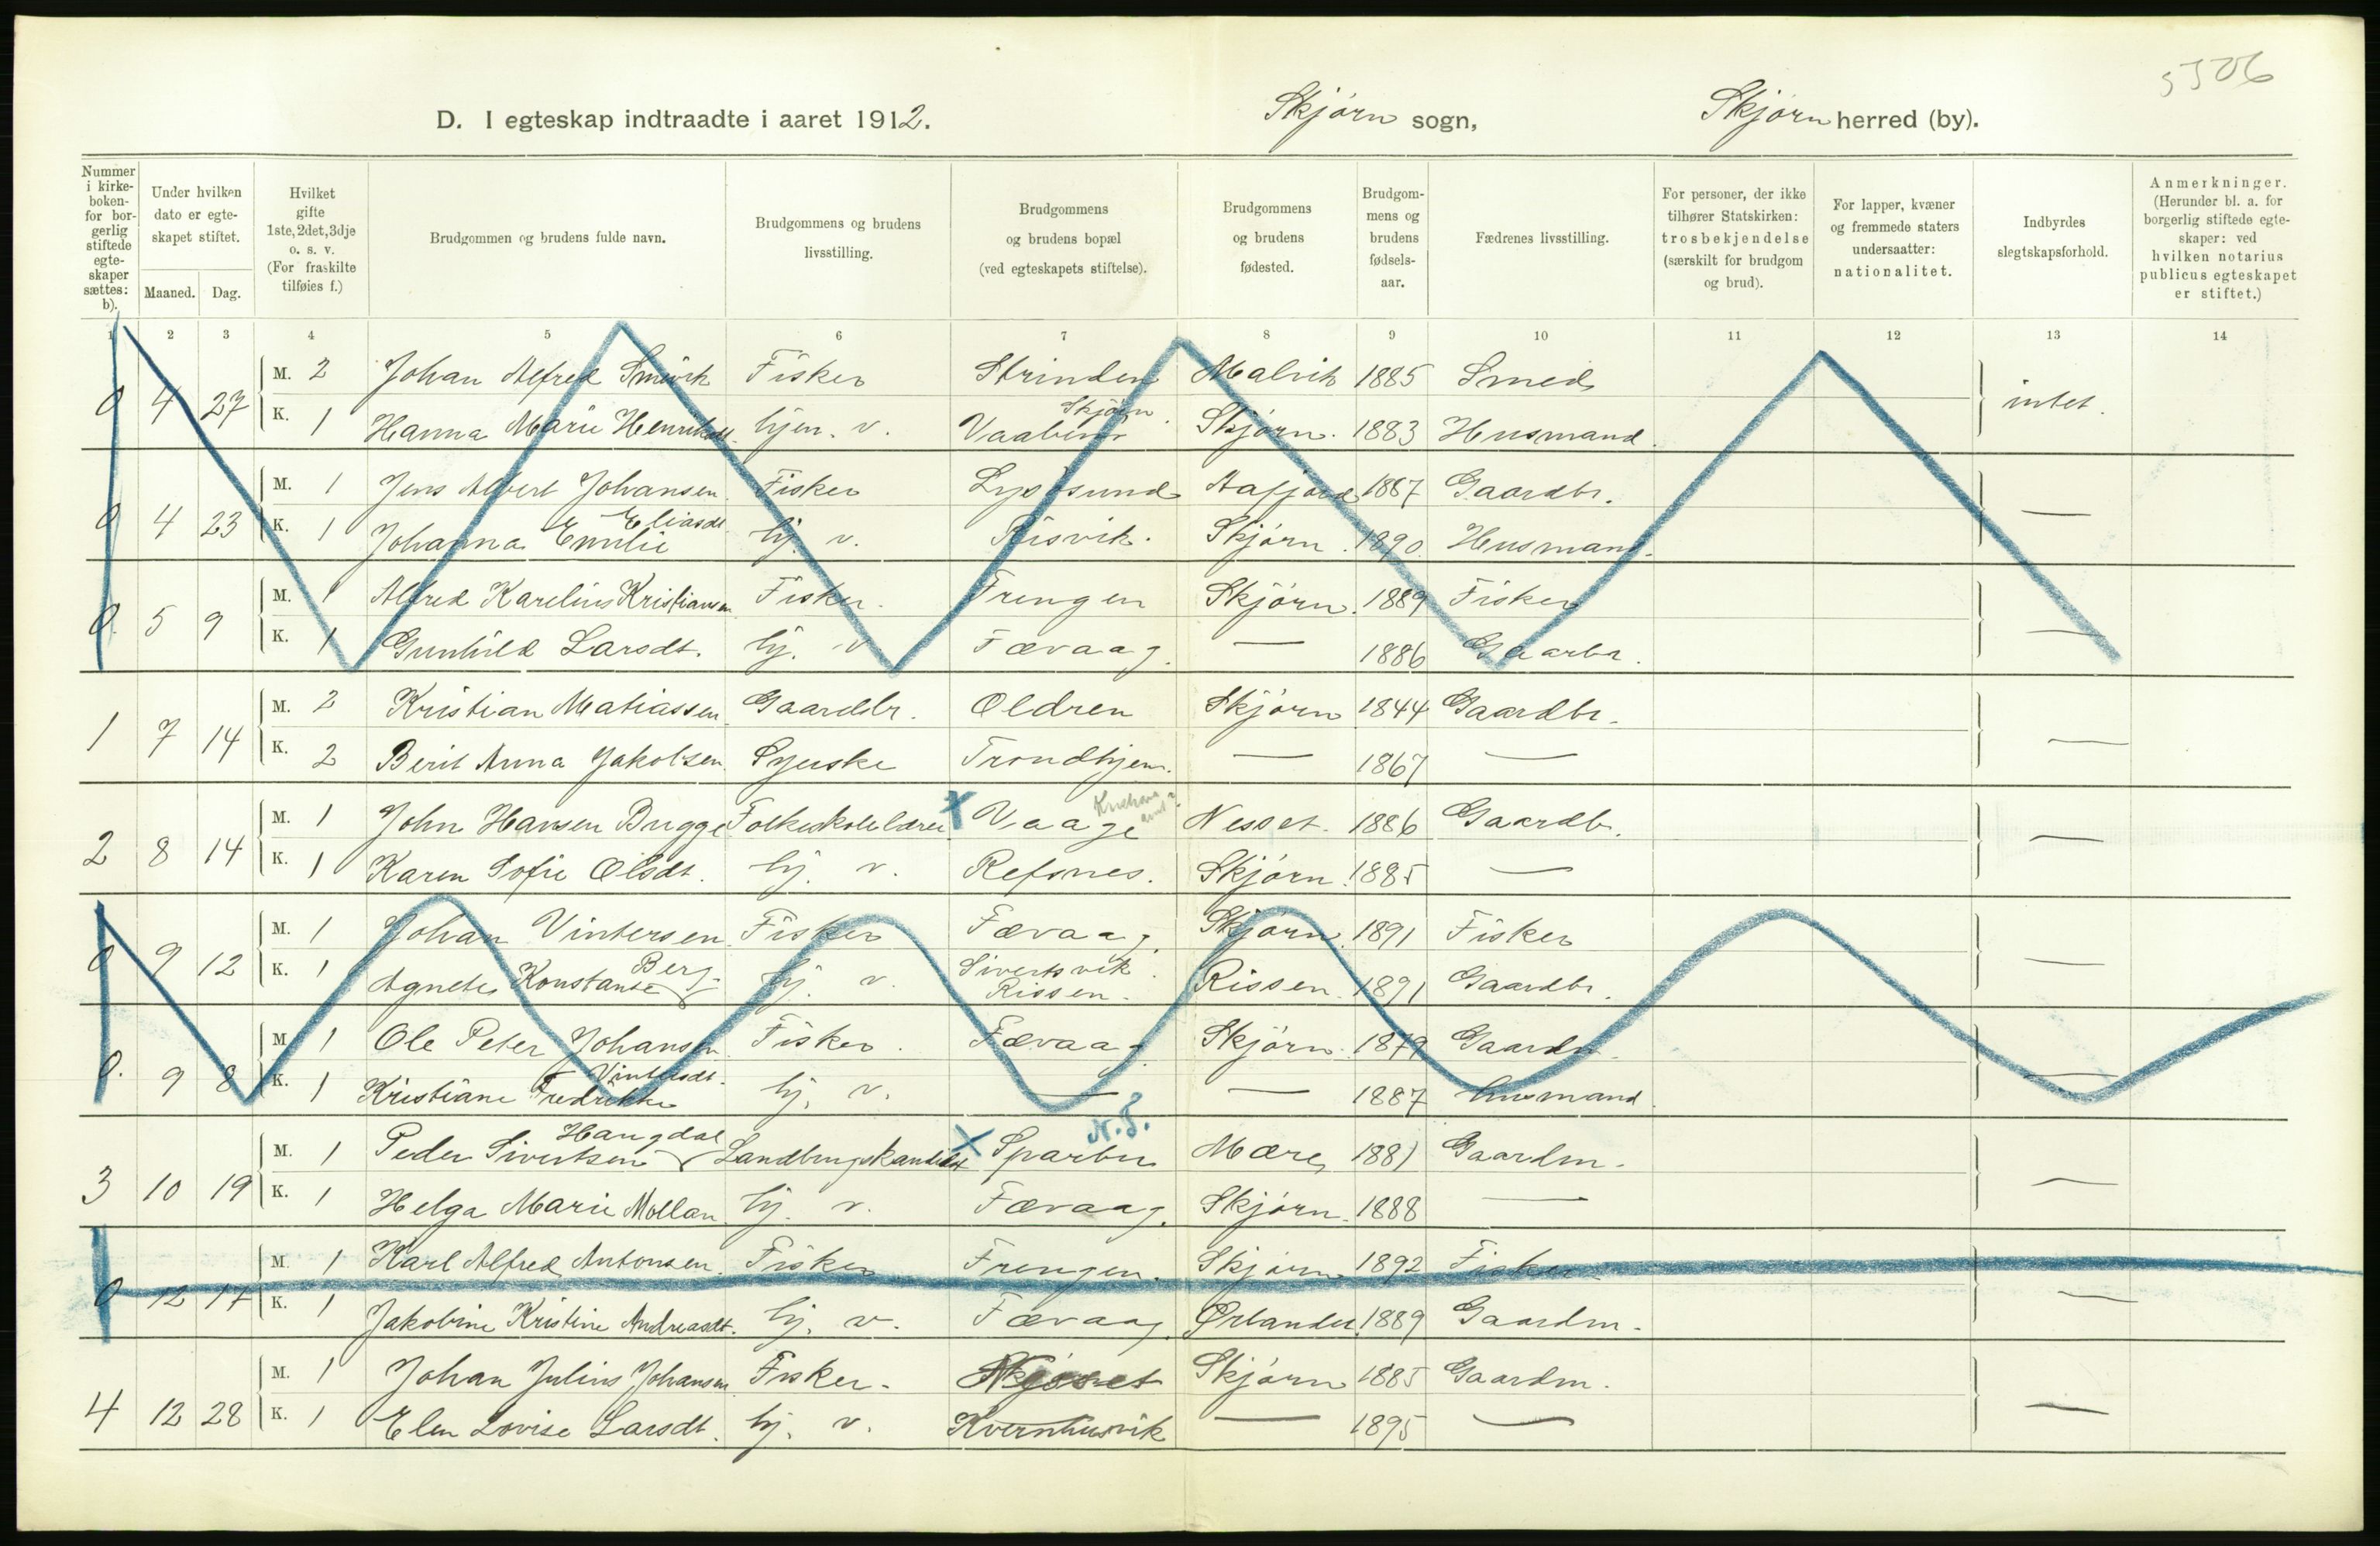 5506
D. I egteskap indtraadte i aaret 1912. Skjørn sogn, Skjørn herred (by).
Nummer i kirke-boken- for bor-gerlig stiftede egte-skaper sættes: b).
Under hvilken dato er egte-skapet stiftet.
Maaned. Dag.
Hvilket gifte 1ste, 2det, 3dje o. s. v. (For fraskilte tilføies f.)
Brudgommen og brudens fulde navn.
Brudgommens og brudens livsstilling.
Brudgommens og brudens bopæl (ved egteskapets stiftelse).
Brudgommens og brudens fødested.
Brudgom-mens og brudens fødsels-aar.
Fædrenes livsstilling.
For personer, der ikke tilhører Statskirken: trosbekjendelse (særskilt for brudgom og brud).
For lapper, kvæner og fremmede staters undersaatter: nationalitet.
Indbyrdes slegtskapsforhold.
Anmerkninger. (Herunder bl. a. for borgerlig stiftede egte-skaper: ved hvilken notarius publicus egteskapet er stiftet.)
1 2 3 4 5 6 7 8 9 10 11 12 13 14
0 4 27 M. 2 Johan Alfred Smevik Fisker Strinden Malvik 1885 Smed intet.
K. 1 Hanna Marie Henriksdt. hjem. v. Skjørn 1883 Husmand.
0 4 23 M. 1 Jens Albert Johansen Fisker Lysøsund Aafjord 1887 Gaardbr. —
K. 1 Johanna Emilie Eliasdt. hj. v. Risvik. Skjørn. 1890. Husmand.
0 5 9 M. 1 Alfred Karelius Kristiansen Fisker. Frengen Skjørn. 1889 Fisker —
K. 1 Gunhild Larsdt. hj. v. Fævaag. — 1886 Gaarbr.
1 7 14 M. 2 Kristian Matiassen Gaardbr. Oldren Skjørn 1844 Gaardbr. —
K. 2 Berit Anna Jakobsen Syerske Trondhjem. — 1867 —
2 8 14 M. 1 John Hansen Bugge Folkeskolelærer X Vaage Nesset. 1886 Gaardbr. —
K. 1 Karen Sofie Olsdt. hj. v. Refsnes. Skjørn. 1885 —
0 9 12 M. 1 Johan Vintersen Fisker Fævaag. Skjørn. 1891 Fisker —
K. 1 Agnete Konstanse Berg hj. v. Sivertsvik Rissen. Rissen 1891 Gaardbr.
0. 9 8 M. 1 Ole Peter Johansen Fisker. Fævaag Skjørn. 1879 Gaardm. —
K. 1 Kristiane Fredrikke Vintersdt. hj. v. — — 1887 husmand.
3 10 19 M. 1 Peder Sivertsen Haugdal Landbrugskandidat X Sparbu N.T. Mære 1881 Gaardm. —
K. 1 Helga Marie Mollan hj. v. Fævaag. Skjørn. 1888 —
0 12 17 M. 1 Karl Alfred Antonsen. Fisker Frengen. Skjørn 1892 Fisker —
K. 1 Jakobine Kristine Andreasdt. hj. v. Fævaag Ørlandet. 1889 Gaardm.
4 12 28 M. 1 Johan Julius Johansen Fisker. Skjørn 1885 Gaardm. —
K. 1 Elen Lovise Larsdt. hj. v. Kvernhusvik — 1895 —